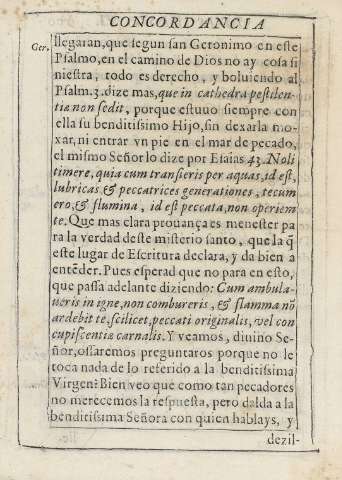 CONCORDANCIA
Ger.
llegaran, que segun san Geronimo en este
Psalmo, en el camino de Dios no ay cosa si
niestra, todo es derecho, y boluiendo al
Psalm. 3. dize mas, que in cathedra pestilen-
tiæ non sedit, porque estuuo siempre con
ella su benditissimo Hijo, sin dexarla mo-
xar, ni entrar vn pie en el mar de pecado,
el mismo Señor lo dize por Esaias 43. Noli
timere, quia cum transieris per aquas, id est,
lubricas & peccatrices generationes, tecum
ero, & flumina, id est peccata, non operiem
te. Que mas clara prouança es menester pa
ra la verdad deste misterio santo, que la q̃
este lugar de Escritura declara, y da bien a
entẽder. Pues esperad que no para en esto,
que passa adelante diziendo: Cum ambula-
ueris in igne, non combureris, & flamma nõ
ardebit te, scilicet, peccati originalis, vel con
cupiscentiæ carnalis. Y veamos, diuino Se-
ñor, ossaremos preguntaros porque no le
toca nada de lo referido a la benditissima
Virgen? Bien veo que como tan pecadores
no merecemos la respuesta, pero dalda a la
benditissima Señora con quien hablays, y
dezil-